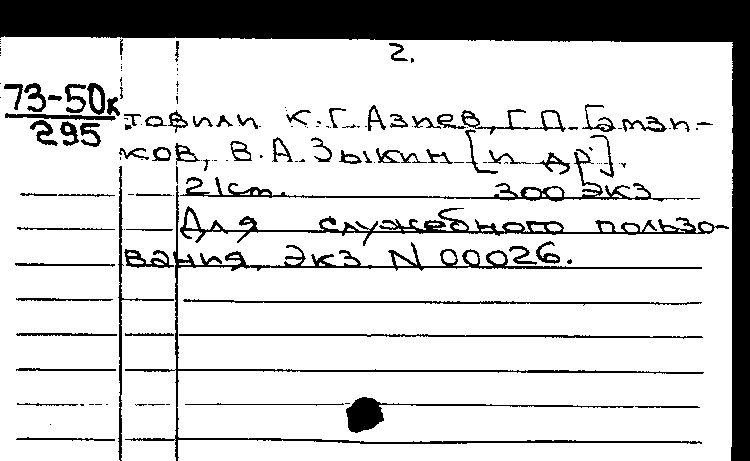 2.
73-50к
295
товили К.Г. Азиев, Г.П. Гамзи-
ков, В.А. Зыкин [и др].
21 см. 300 экз.
Для служебного пользо-
вания. Экз. N 00026.